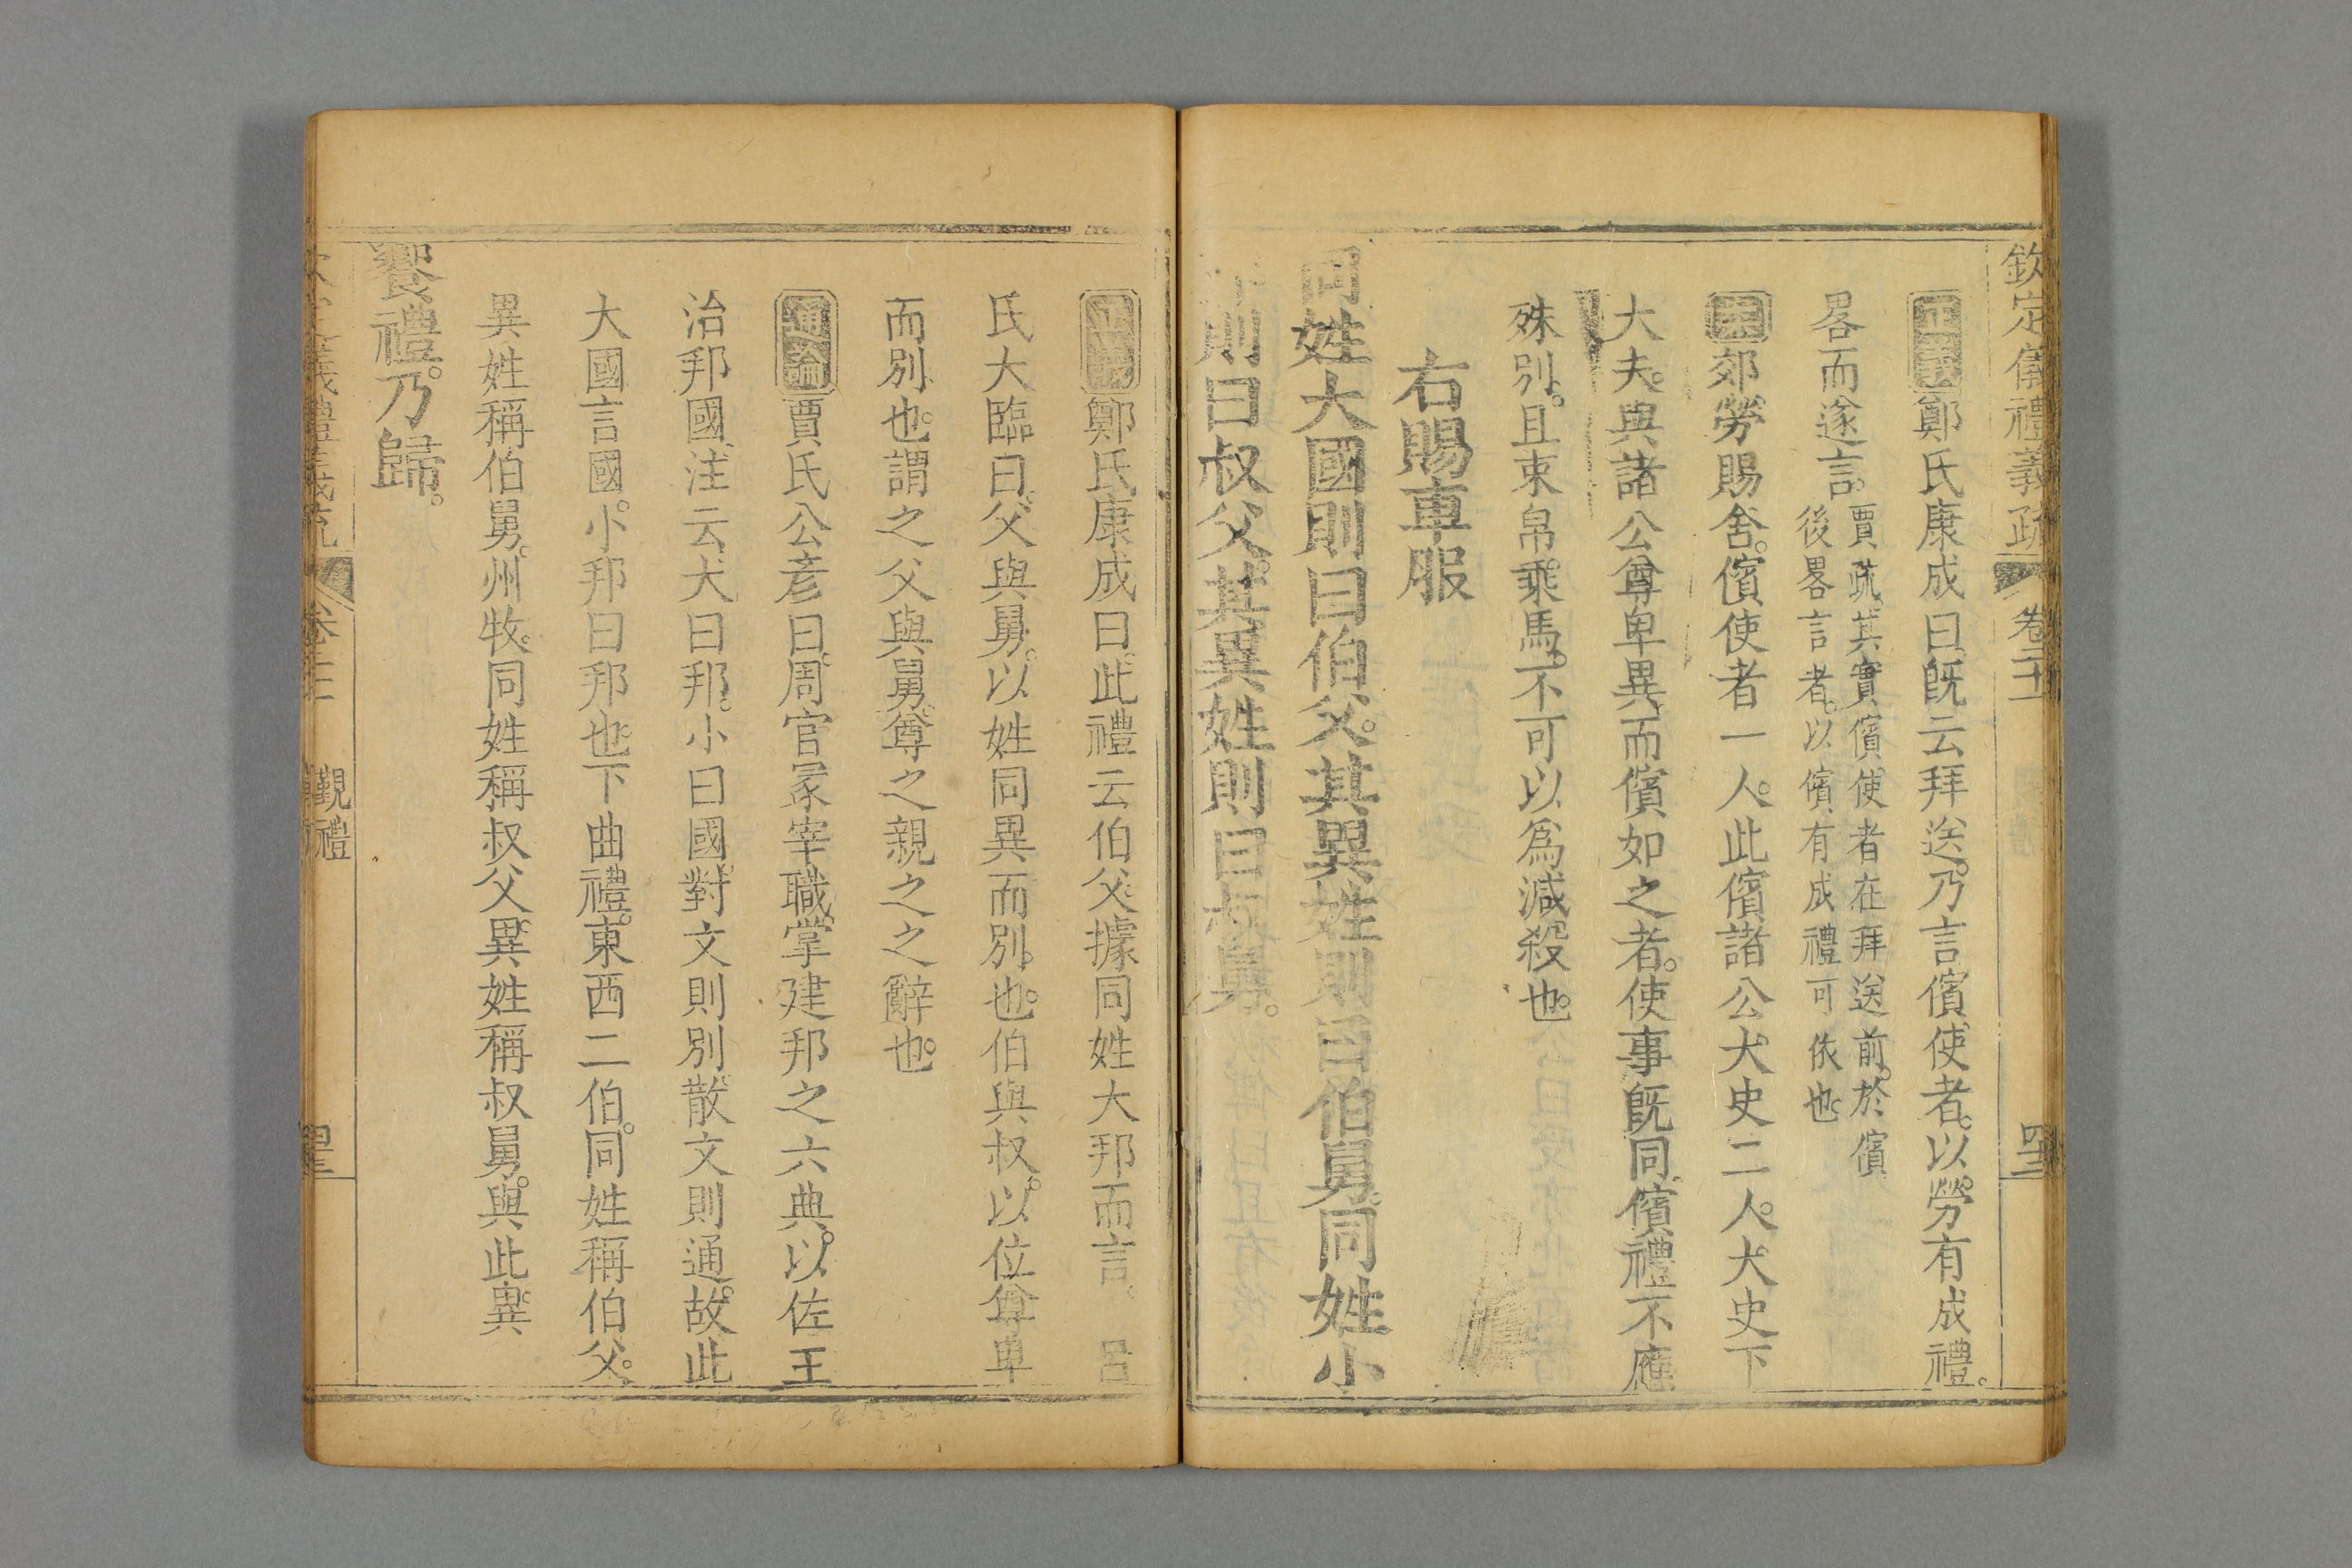 欽定儀禮義疏 卷二十一
正義鄭氏康成曰既云拜送乃言儐使者以勞有成禮
畧而遂言賈疏其實儐使者在拜送前於儐
後畧言者以儐有成禮可依也
案郊勞賜舍儐使者一人此儐諸公大史二人大史下
大夫與諸公尊卑異而儐如之者使事既同儐禮不應
殊別且束帛乘馬不可以為減殺也
右賜車服
同姓大國則曰伯父其異姓則曰伯舅同姓小
則曰叔父其異姓則曰叔舅
正義鄭氏康成曰此禮云伯父據同姓大邦而言 呂
氏大臨曰父與舅以姓同異而別也伯與叔以位尊卑
而別也謂之父與舅尊之親之之辭也
通論賈氏公彥曰周官冢宰職掌建邦之六典以佐王
治邦國注云大曰邦小曰國對文則別散文則通故此
大國言國小邦曰邦也下曲禮東西二伯同姓稱伯父
異姓稱伯舅州牧同姓稱叔父異姓稱叔舅與此異
饗禮乃歸
義禮義疏 卷二十一 覲禮